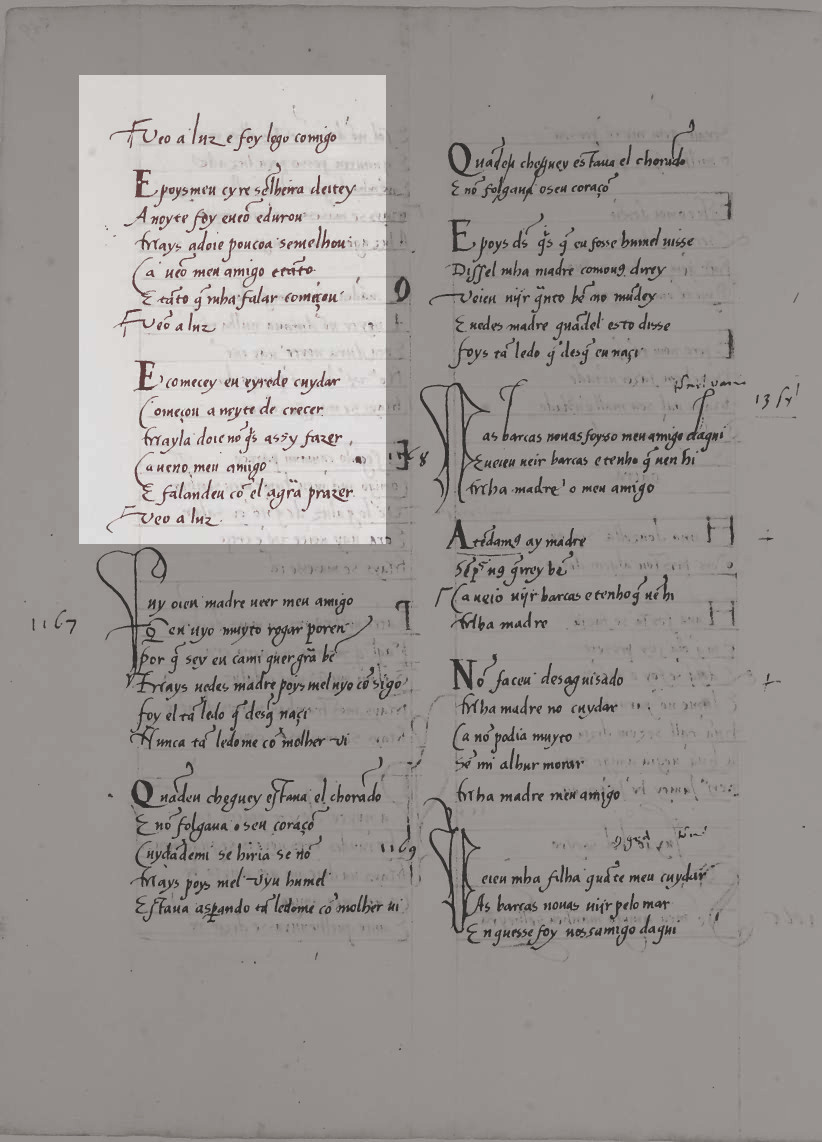 Veo a luz e foy logo comigo
E poys meu eyre senlheira deitey
A noyte foy e ueo e durou
Mays adoie pouco a semelhou
Ca ueo meu amigo e tãto
E tãto q̃ mha falar começou
Veo a luz
E comecey eu eyrede cuydar
Começou a noyte de crecer
Mayla doie nõ q̃s assy fazer
Ca ueno meu amigo
E falandeu cõ el a grã prazer
Veo a luz
1167
uy oieu madre ueer meu amigo
Q̃ enuyo muyto rogar poren
Por q̃ sey eu cami quer grã bẽ
Mays uedes madre poys mel uyo cõsigo
foy el tã ledo q̃ desq̃ naçi
Nunca tã ledome cõ molher vi
Quãdeu cheguey estaua el chorãdo
E nõ folgaua o seu coraçõ
Cuydãdemi se hiria se nõ
Mays poys mel uyu humel
Estaua asꝑando tã ledome cõ molher ui
Quãdeu cheguey estaua el chorãdo
E nõ folgaua o seu coraçõ
E poys ds q̃s q̃ eu fosse humel uisse
Dissel mha madre comou9 direy
Veieu uijr q̃nto bẽ no mũdey
E uedes madre quãdel esto disse
foys tã ledo q̃ desq̃ eu naçi
1168
as barcas nouas foyso meu amigo daqui
E ueieu ueir barcas e tenho q̃ uen hi
Mha madre o meu amigo
Atẽdam9 ay madre
Sẽpr u9 q̃rrey bẽ
Ca ueio uijr barcas e tenho q̃ uẽ hi
Mha madre
Nõ faceu desaguisado
Mha madre no cuydar
Ca nõ podia muyto
Sẽ mi alhur morar
Mha madre meu amigo
1169
eieu mha filha quãte meu cuydar
As barcas nouas uijr pelo mar
En quesse foy uossamigo daqui